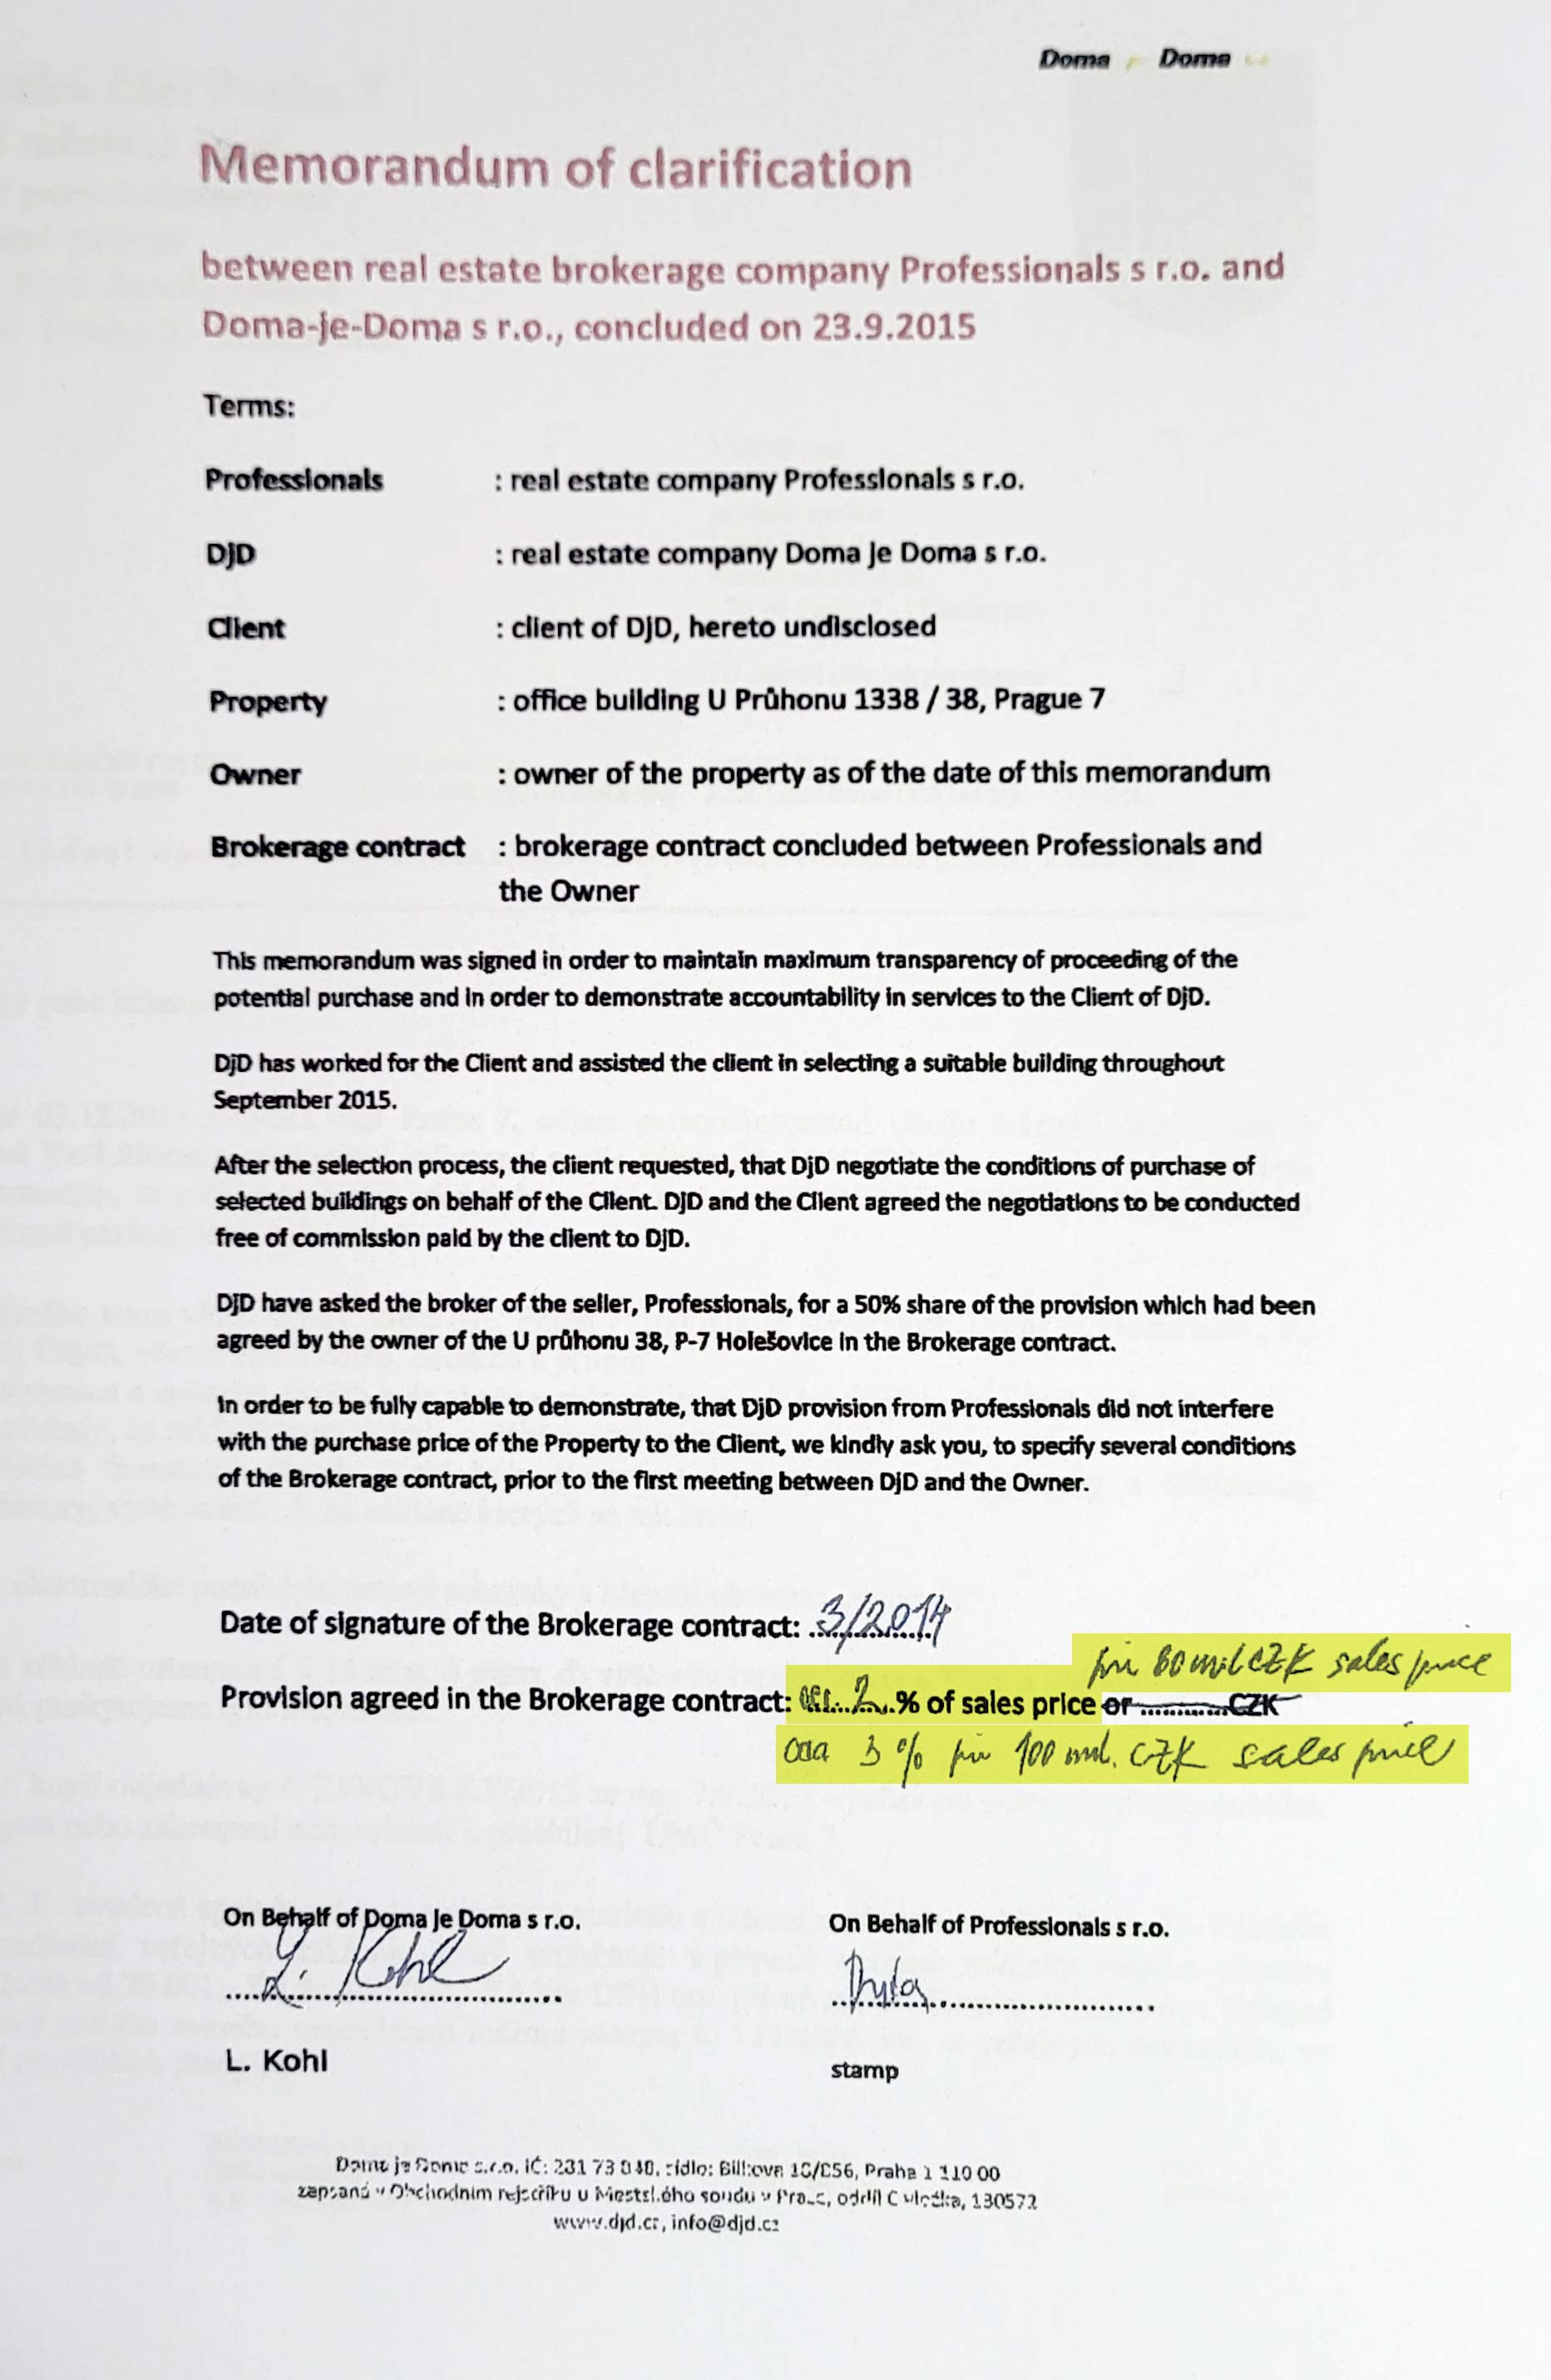 Doma Doma
Memorandum of clarification
between real estate brokerage company Professionals s r.o. and
Doma-je-Doma s r.o., concluded on 23.9.2015
Terms:
Professionals : real estate company Professionals s r.o.
DjD : real estate company Doma Je Doma s r.o.
Client : client of DjD, hereto undisclosed
Property : office building U Průhonu 1338 / 38, Prague 7
Owner : owner of the property as of the date of this memorandum
Brokerage contract : brokerage contract concluded between Professionals and
the Owner
This memorandum was signed in order to maintain maximum transparency of proceeding of the
potential purchase and in order to demonstrate accountability in services to the Client of DjD.
DjD has worked for the Client and assisted the client in selecting a suitable building throughout
September 2015.
After the selection process, the client requested, that DjD negotiate the conditions of purchase of
selected buildings on behalf of the Client. DjD and the Client agreed the negotiations to be conducted
free of commission paid by the client to DjD.
DjD have asked the broker of the seller, Professionals, for a 50% share of the provision which had been
agreed by the owner of the U průhonu 38, P-7 Holešovice in the Brokerage contract.
In order to be fully capable to demonstrate, that DjD provision from Professionals did not interfere
with the purchase price of the Property to the Client, we kindly ask you, to specify several conditions
of the Brokerage contract, prior to the first meeting between DjD and the Owner.
Date of signature of the Brokerage contract: 3/2014
při 60 mil CZK sales price
Provision agreed in the Brokerage contract: 2 % of sales price or ........... CZK
3 % při 100 mil. CZK sales price
On Behalf of Doma Je Doma s r.o. On Behalf of Professionals s r.o.
L. Kohl
L. Kohl stamp
Doma je Doma s.r.o. IČ: , sídlo: Bílkova , Praha 1 110 00
zapsaná v Obchodním rejstříku u Městského soudu v Praze, oddíl C vložka, 130572
www.djd.cz, info@djd.cz